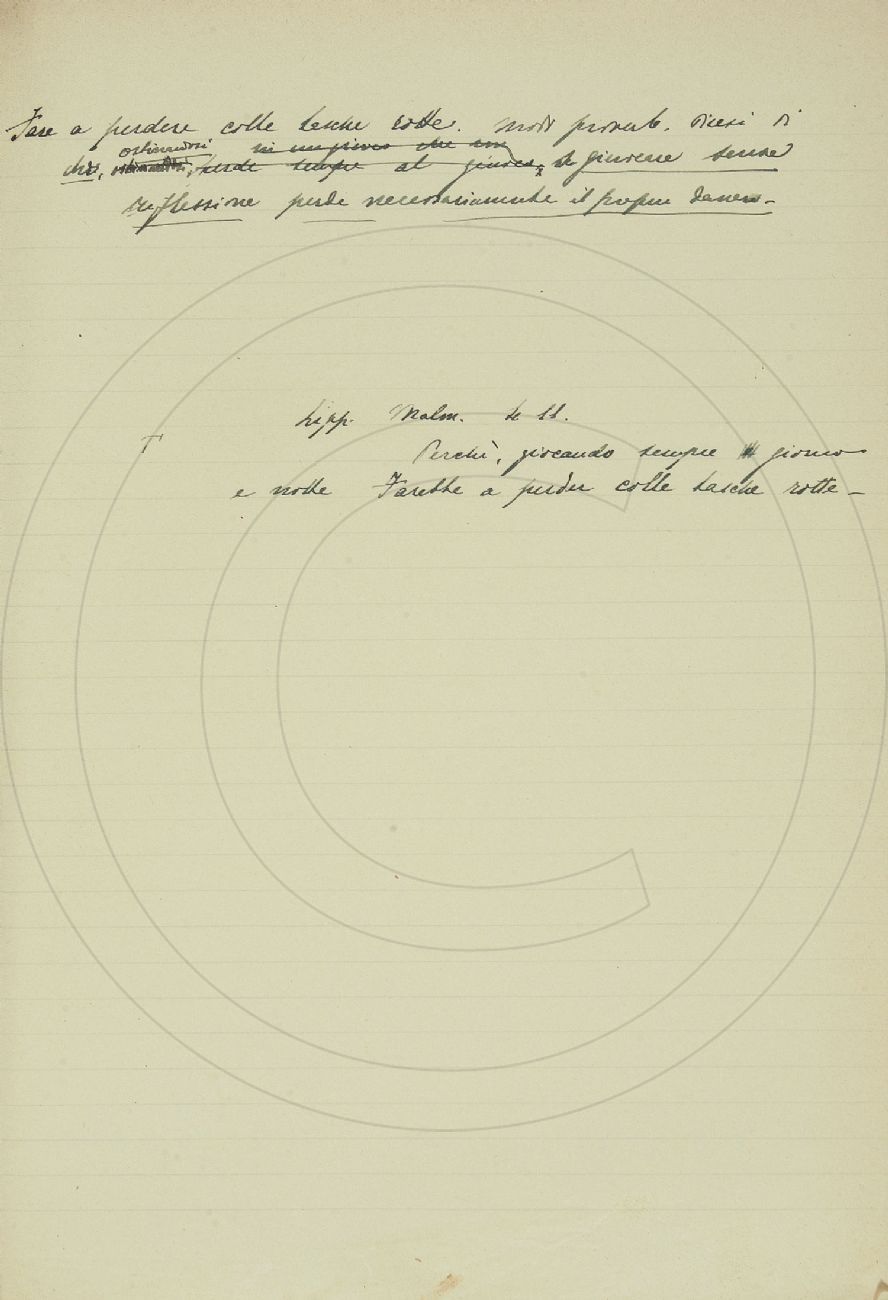 Fare a perdere colle tasche rotte. Modo proverb. Dicesi di
ostinandosi in un giuoco che
chi, perde sempre al giuoco, a giuocare senza
riflessione perde necessariamente il proprio danaro.
Lipp. Malm. 11.
T
Perchè, giocando sempre giorno
e notte Farebbe a perder colle tasche rotte_